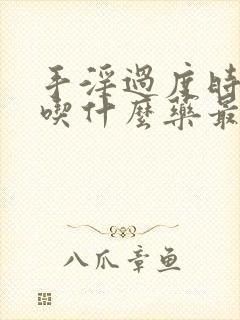 手淫過度時
喫什麼藥最
八爪章鱼